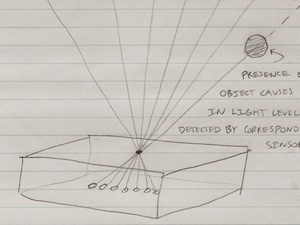 PRESENCE
OBJECT CAUSES
IN LIGHT LEVEL
DETECTED BY CORRESPOND
SENSO